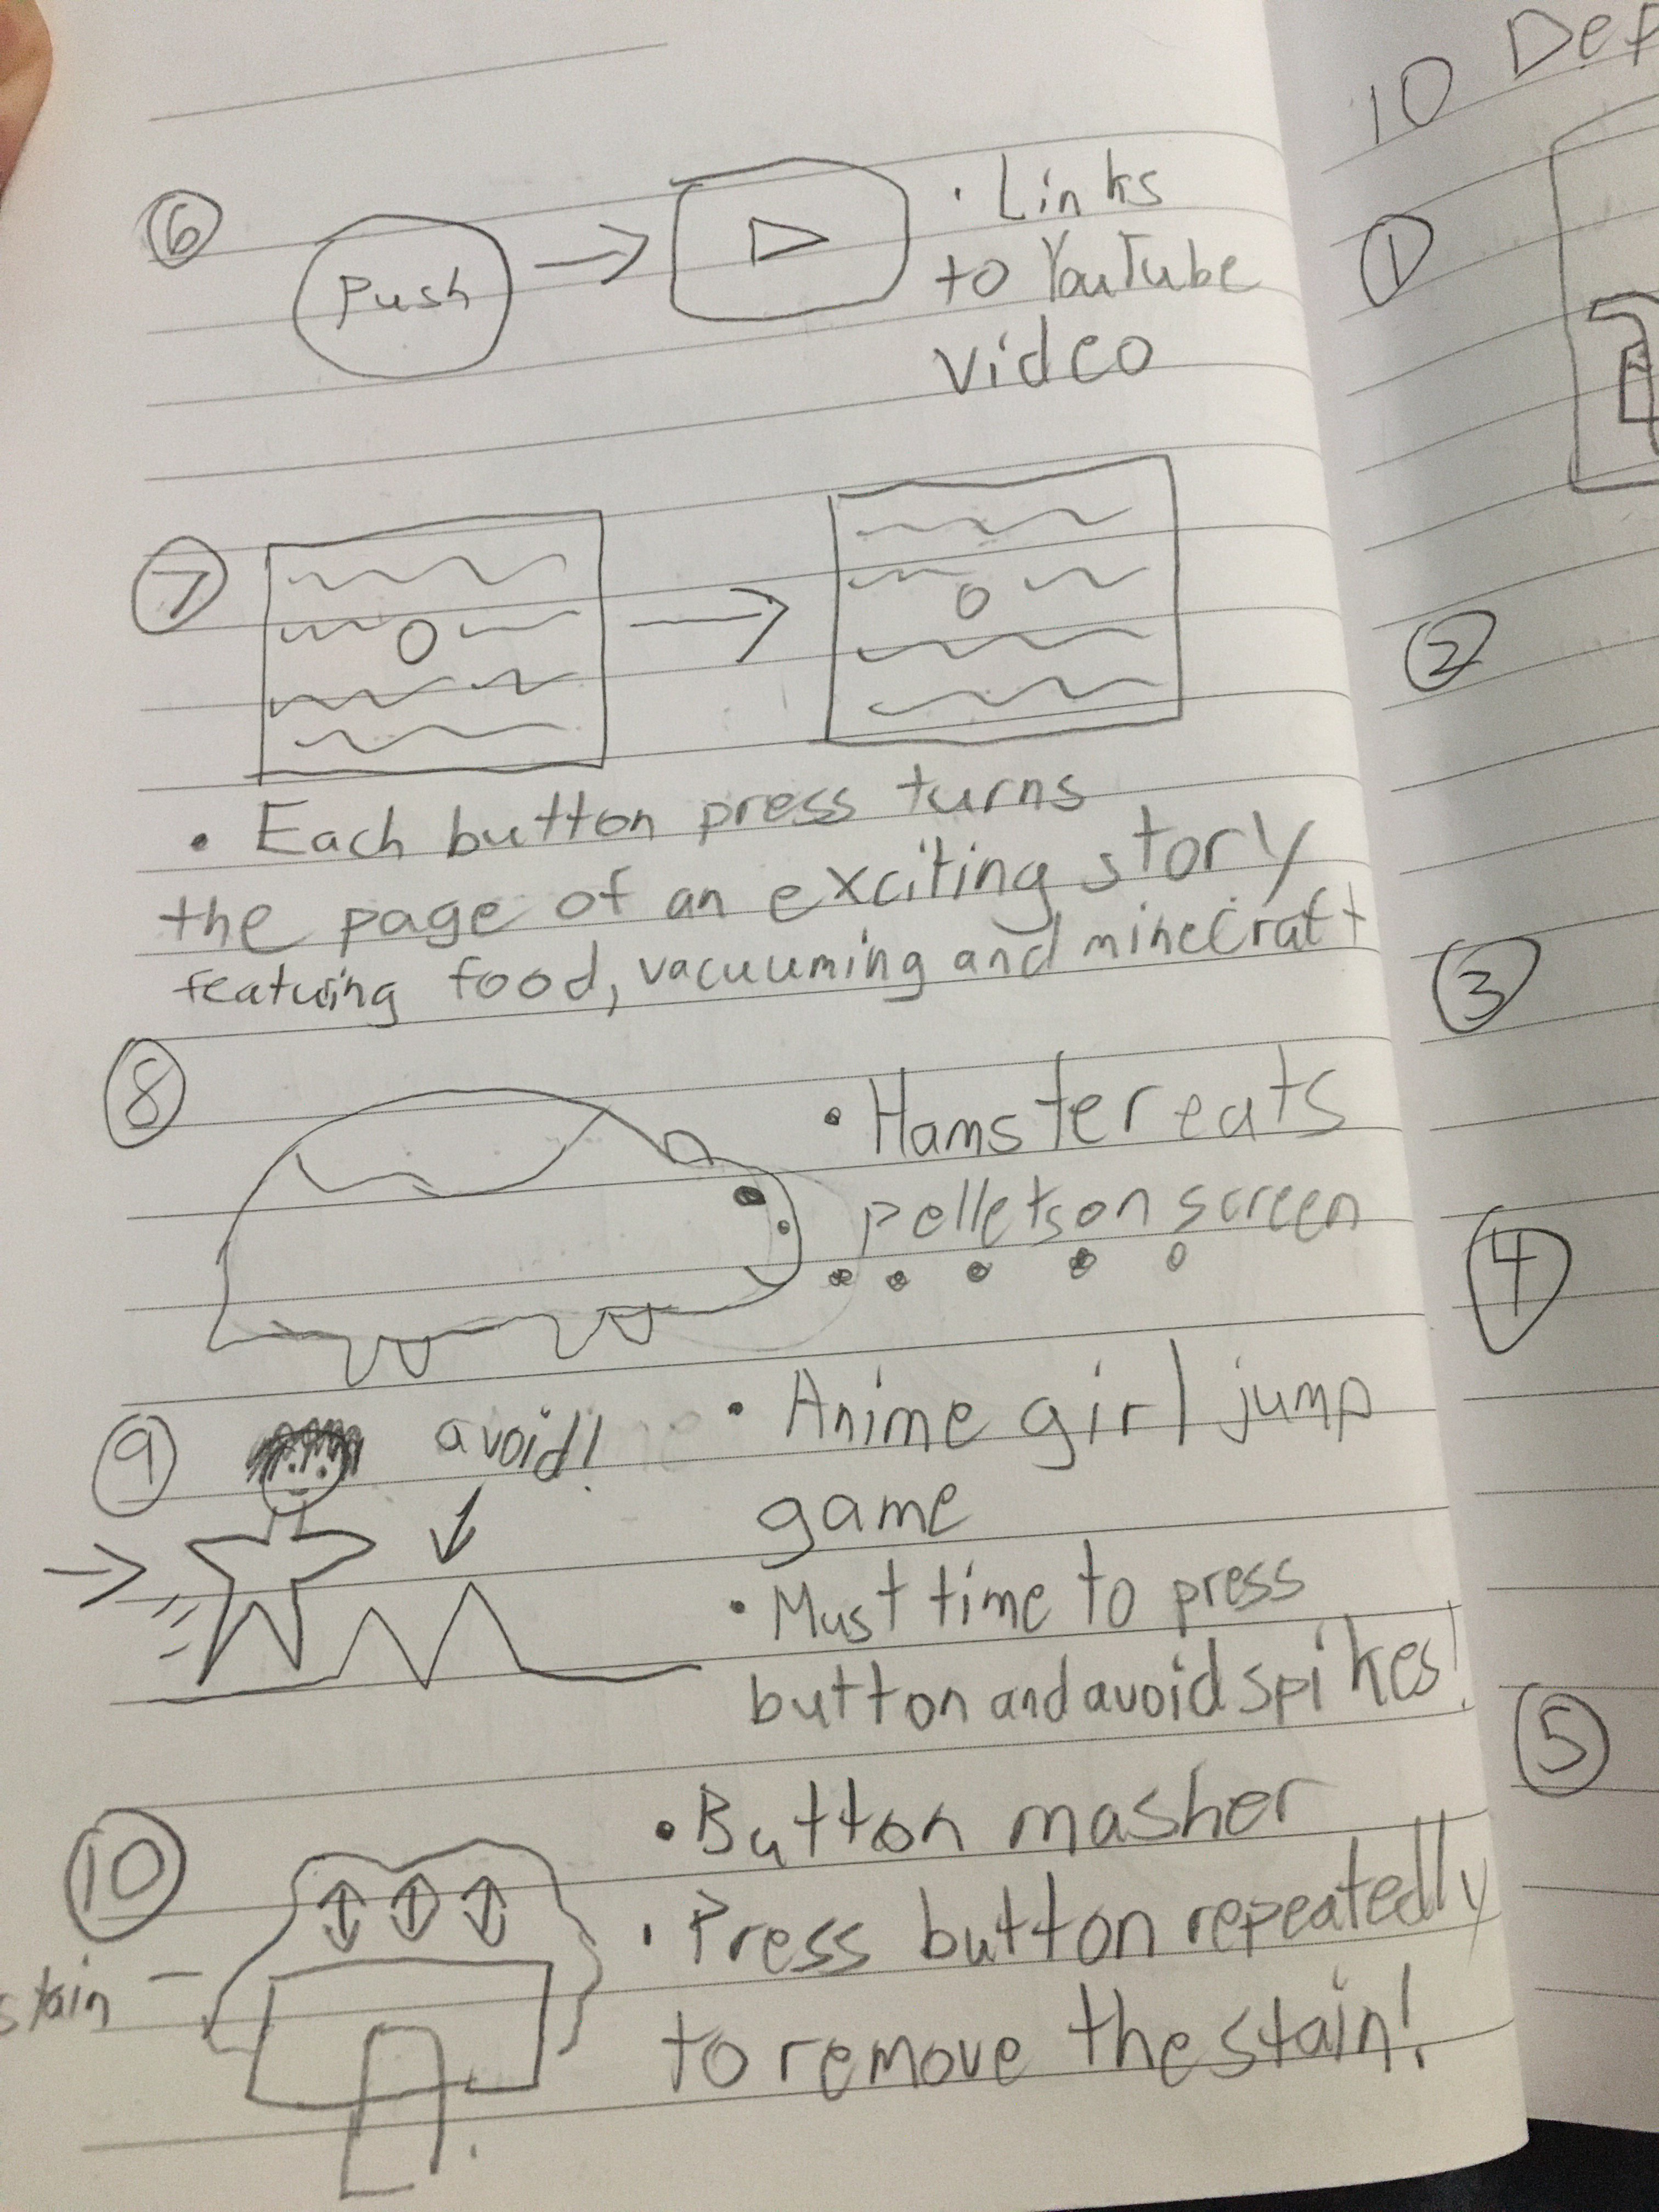 6
Push
• Links
to YouTube
video
7
• Each button press turns
the page of an exciting story
featuring food, vacuuming and minecraft
8
• Hamster eats
pellets on screen
9
avoid!
• Anime girl jump
game
• Must time to press
button and avoid spikes!
10
stain
• Button masher
• Press button repeatedly
to remove the stain!
10
1
2
3
4
5